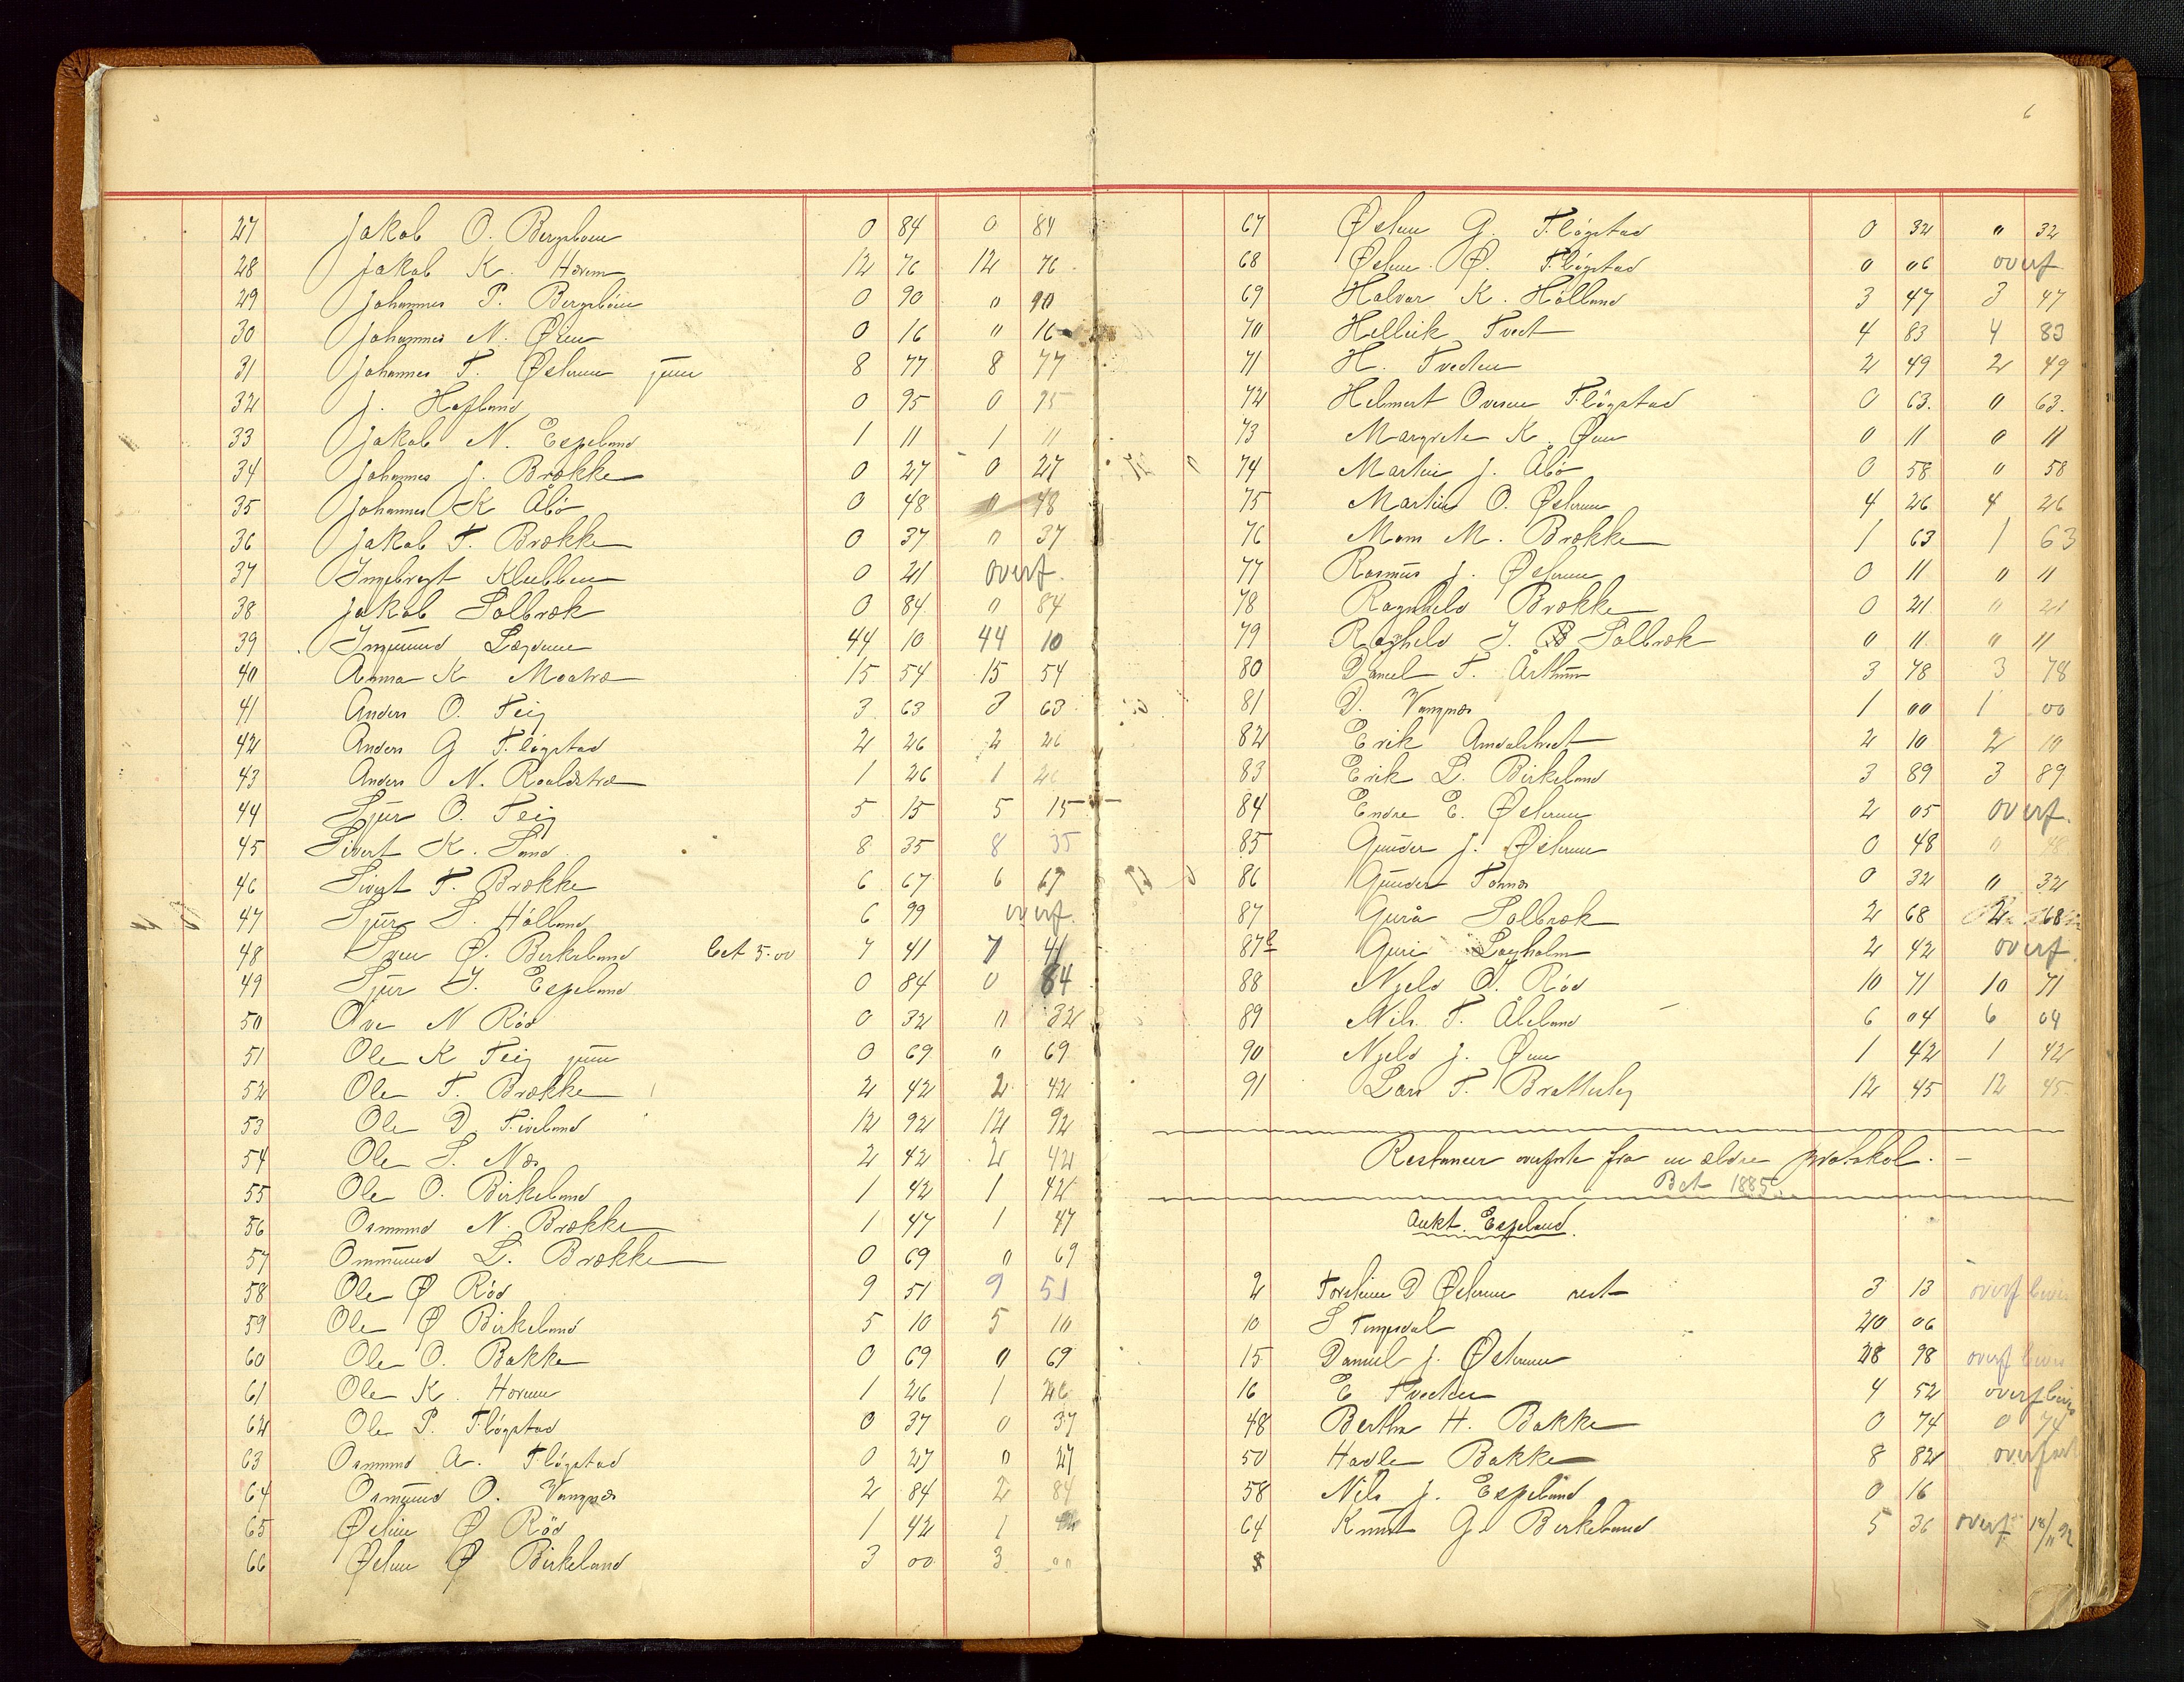 27 Jakob O. Bergsboen 0 84 0 84
28 Jakob K. Horven 12 76 12 76
29 Johannes P. Bergsboen 0 90 " 90
30 Johannes N. Øren 0 16 " 16
31 Johannes T. Østrem jun 8 77 8 77
32 J. Hafland 0 95 0 95
33 Jakob N. Espeland 1 11 1 11
34 Johannes J. Brække 0 27 0 27
35 Johannes K Åbø 0 48 " 48
36 Jakob T. Brække 0 37 " 37
37 Ingebregt Klubben 0 21 overf.
38 Jakob Solbræk 0 84 " 84
39 Ingmund 44 10 44 10
40 Anna K Moatræ 15 54 15 54
41 Anders O. Teig 3 63 3 63
42 Anders G Fløgstad 2 26 2 26
43 Anders N. Roaldstræ 1 26 1 26
44 Sjur O. Teig 5 15 5 15
45 Sivert K. Sand 8 35 8 35
46 Sivert T. Brække 6 67 6 67
47 Sjur S. Hålland 6 99 overf.
48 Sven Ø. Birkeland bet 5.00 7 41 7 41
49 Sjur I. Espeland 0 84 0 84
50 Ove N Rød 0 32 " 32
51 Ole K Teig jun 0 69 " 69
52 Ole T. Brække 2 42 2 42
53 Ole D Fiveland 12 92 12 92
54 Ole S. Næs 2 42 2 42
55 Ole O. Birkeland 1 42 1 42
56 Osmund N. Brække 1 47 1 47
57 Ommund L. Brække 0 69 " 69
58 Ole Ø Rød 9 51 9 51
59 Ole Ø Birkeland 5 10 5 10
60 Ole O. Bakke 0 69 " 69
61 Ole K. Horven 1 26 1 26
62 Ole P. Fløgstad 0 37 0 37
63 Osmund A. Fløgstad 0 27 " 27
64 Osmund O. Vangnæs 2 84 2 84
65 Østen Ø Rød 1 42 1 42
66 Østen Ø Birkeland 3 00 3 00
6
67 Østen G. Fløgstad 0 32 " 32
68 Østen Ø. Fløgstad 0 06 overf
69 Halvor K. Hålland 3 47 3 47
70 Hellick Tvedt 4 83 4 83
71 H. Tvedten 2 49 2 49
72 Helmert Ovesen Fløgstad 0 63. " 63.
73 Margrete K. Øren 0 11 0 11
74 Martin J. Åbø 0 58 " 58
75 Martin O. Østrem 4 26 4 26
76 Mons M. Brække 1 63 1 63
77 Rasmus J. Østrem 0 11 " 11
78 Ragnhild Brække 0 21 " 21
79 Raghild I. Solbræk 0 11. " 11
80 Daniel T. Årthun 3 78 3 78
81 D. Vangnæs 1 00 1 00
82 Erik Amdalstvedt 2 10 2 10
83 Erik L. Birkeland 3 89 3 89
84 Endre E. Østrem 2 05 overf.
85 Gunder J. Østrem 0 48 " 48
86 Gunder Tonnes 0 32 " 32
87 Guro Solbræk 2 68 2 68
87b Guri Lægholm 2 42 overf.
88 Njeld O. Rød 10 71 10 71
89 Nils T. Åbeland 6 04 6 04
90 Njeld J. Øren 1 42 1 42
91 Lars T. Bratteteig 12 45 12 45
Restancer overførte fra en ældre protokol.
Bet 1885
Aukt. Espeland.
2 Torstein D Østrem rest 3 13 overf
10 S Tingsdal 20 06
15 Daniel J. Østrem 28 98 overf
16 E Tvedten 4 52 overf
48 Bertha H. Bakke 0 74 0 74
50 Hadle Bakke 8 82 overført
58 Nils J. Espeland 0 16
64 Knut G. Birkeland 5 36 overf 18/11 92